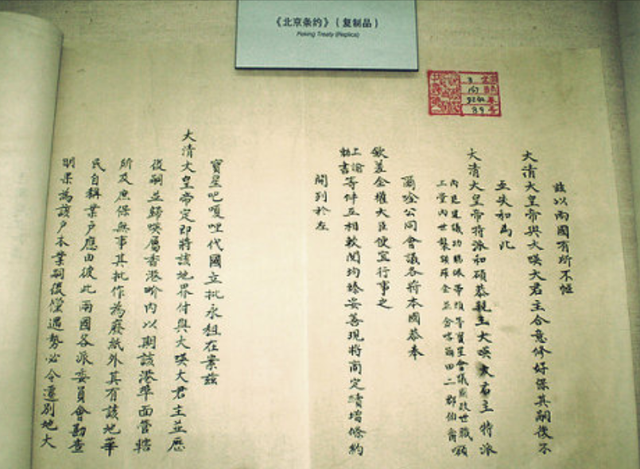 《北京条约》(复制品)
Peking Treaty (Replica)
茲以兩國有所不愜
大清大皇帝與大暎大君主合意修好保其嗣後不
至失和為此
大清大皇帝特派和碩恭親王大暎大君主特派
內廷建議功賜佩帶頭等寶星會議國政世職頒
上堂內世襲額羅金並金喀爾田二郡伯爵額
爾唫公同會議各將本國恭奉
欽差全權大臣便宜行事之
上諭
敕書等件互相較閱均臻妥善現將商定續增條約
開列於左
寶星吧嗄哩代國立批永租在案茲
大清大皇帝定即將該地界付與大暎大君主並歷
後嗣並歸暎屬香港界內以期該港埠面管轄
所及庶保無事其批作為廢紙外其有該地華
民自稱業戶應由彼此兩國各派委員會勘查
明果為該戶本業嗣後倘遇勢必令遷別地大